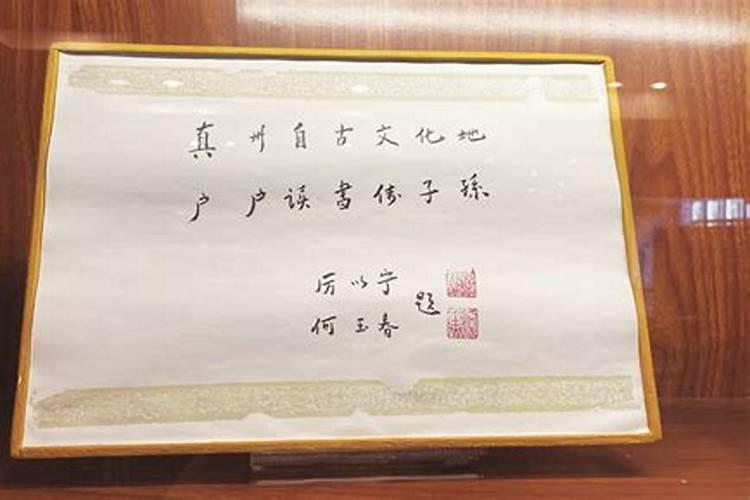 真州自古文化地
户户读书传子孙
厉以宁
何玉春
题